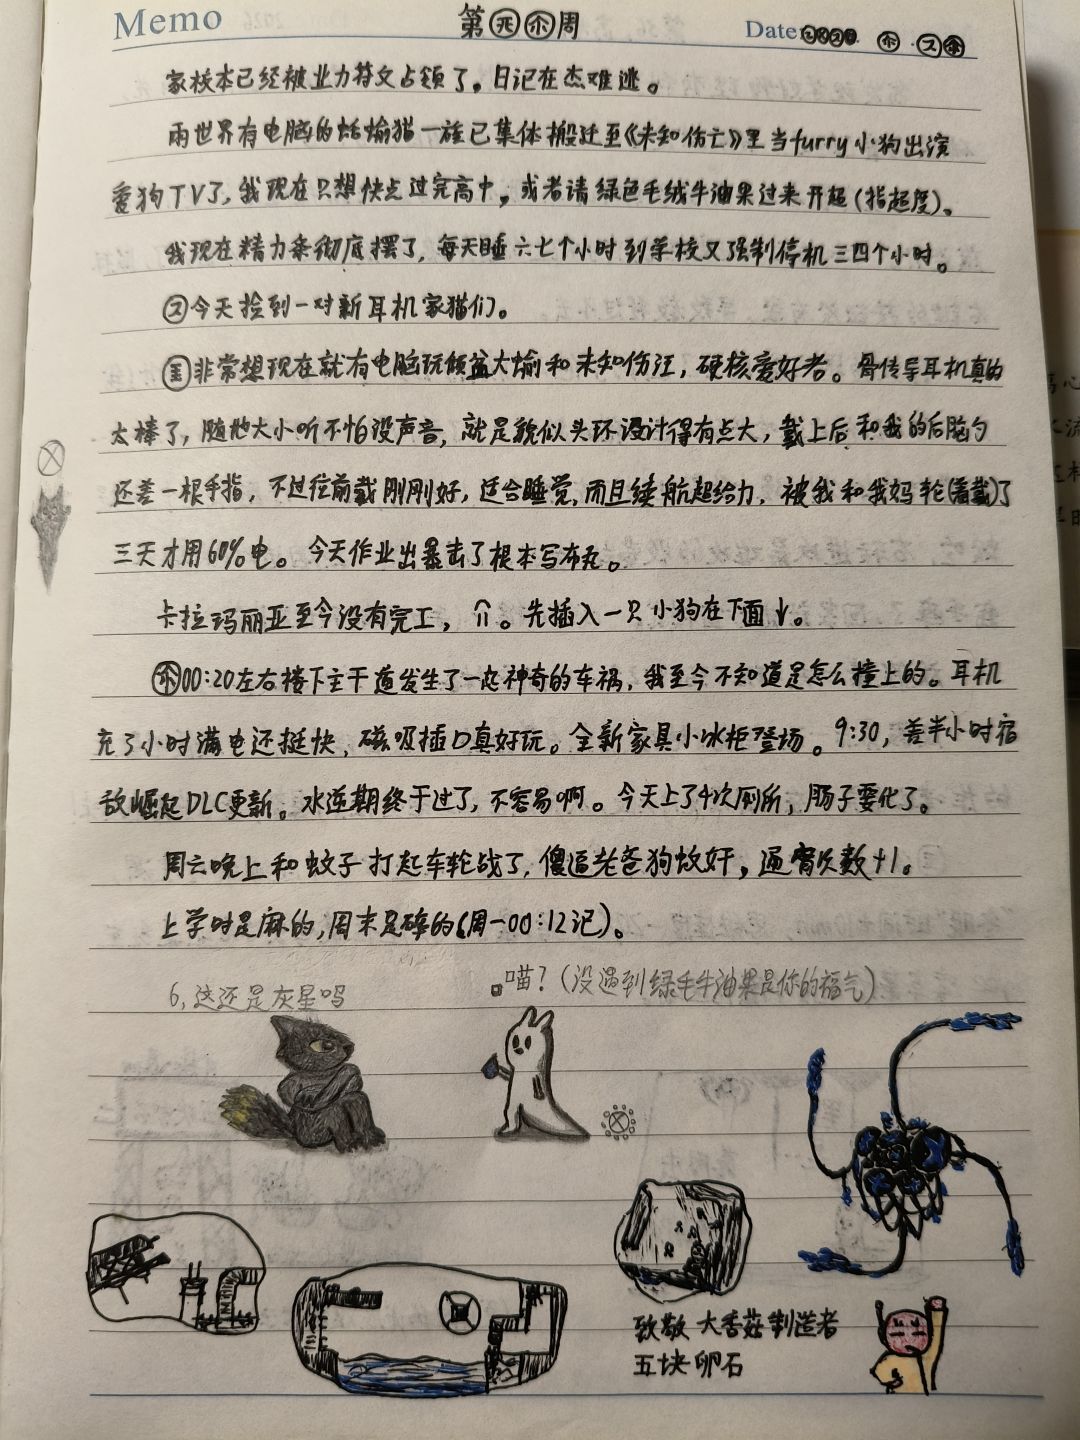 Memo 第周 Date
家校本已经被业力符文占领了。日记在杰难逃。
两世界有电脑的蛞蝓猫一族已集体搬迁至《未知伤亡》里当furry小狗出演
爱狗TV了,我现在只想快点过完高中,或者请绿色毛绒牛油果过来开超(指超度)。
我现在精力条彻底摆了,每天睡六七个小时到学校又强制停机三四个小时。
今天捡到一对新耳机家猫们。
非常想现在就有电脑玩倾盆大蝓和未知伤汪,硬核爱好者。骨传导耳机真的
太棒了,随他大小听不怕没声音,就是貌似头环设计得有点大,戴上后和我的后脑勺
还差一根手指,不过往前戴刚刚好,适合睡觉,而且续航超给力,被我和我妈轮(着戴)了
三天才用60%电。今天作业出暴击了根本写布丸。
卡拉玛丽亚至今没有完工,介。先插入一只小狗在下面↓。
00:20左右楼下主干道发生了一起神奇的车祸,我至今不知道是怎么撞上的。耳机
充了小时满电还挺快,磁吸插口真好玩。全新家具小冰柜登场。9:30,差半小时宿
敌崛起DLC更新。水逆期终于过了,不容易啊。今天上了4次厕所,肠子要化了。
周六晚上和蚊子打起车轮战了,傻逼老爸狗蚊奸,通宵次数+1。
上学时是麻的,周末是碎的(周一00:12记)。
6,这还是灰星吗
喵?(没遇到绿毛牛油果是你的福气)
致敬 大香菇制造者
五块卵石